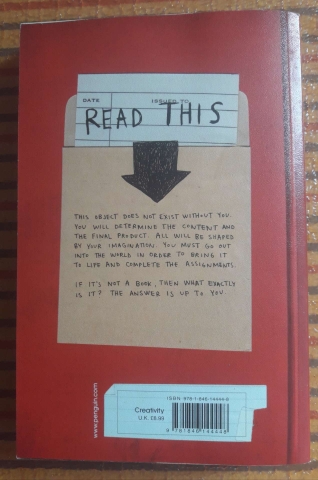 DATE ISSUED TO
READ THIS
THIS OBJECT DOES NOT EXIST WITHOUT YOU.
YOU WILL DETERMINE THE CONTENT AND
THE FINAL PRODUCT. ALL WILL BE SHAPED
BY YOUR IMAGINATION. YOU MUST GO OUT
INTO THE WORLD IN ORDER TO BRING IT
TO LIFE AND COMPLETE THE ASSIGNMENTS.
IF IT'S NOT A BOOK, THEN WHAT EXACTLY
IS IT? THE ANSWER IS UP TO YOU.
www.penguin.com
Creativity
U.K. £9.99
ISBN 978-1-846-14444-8
9 781846 144448